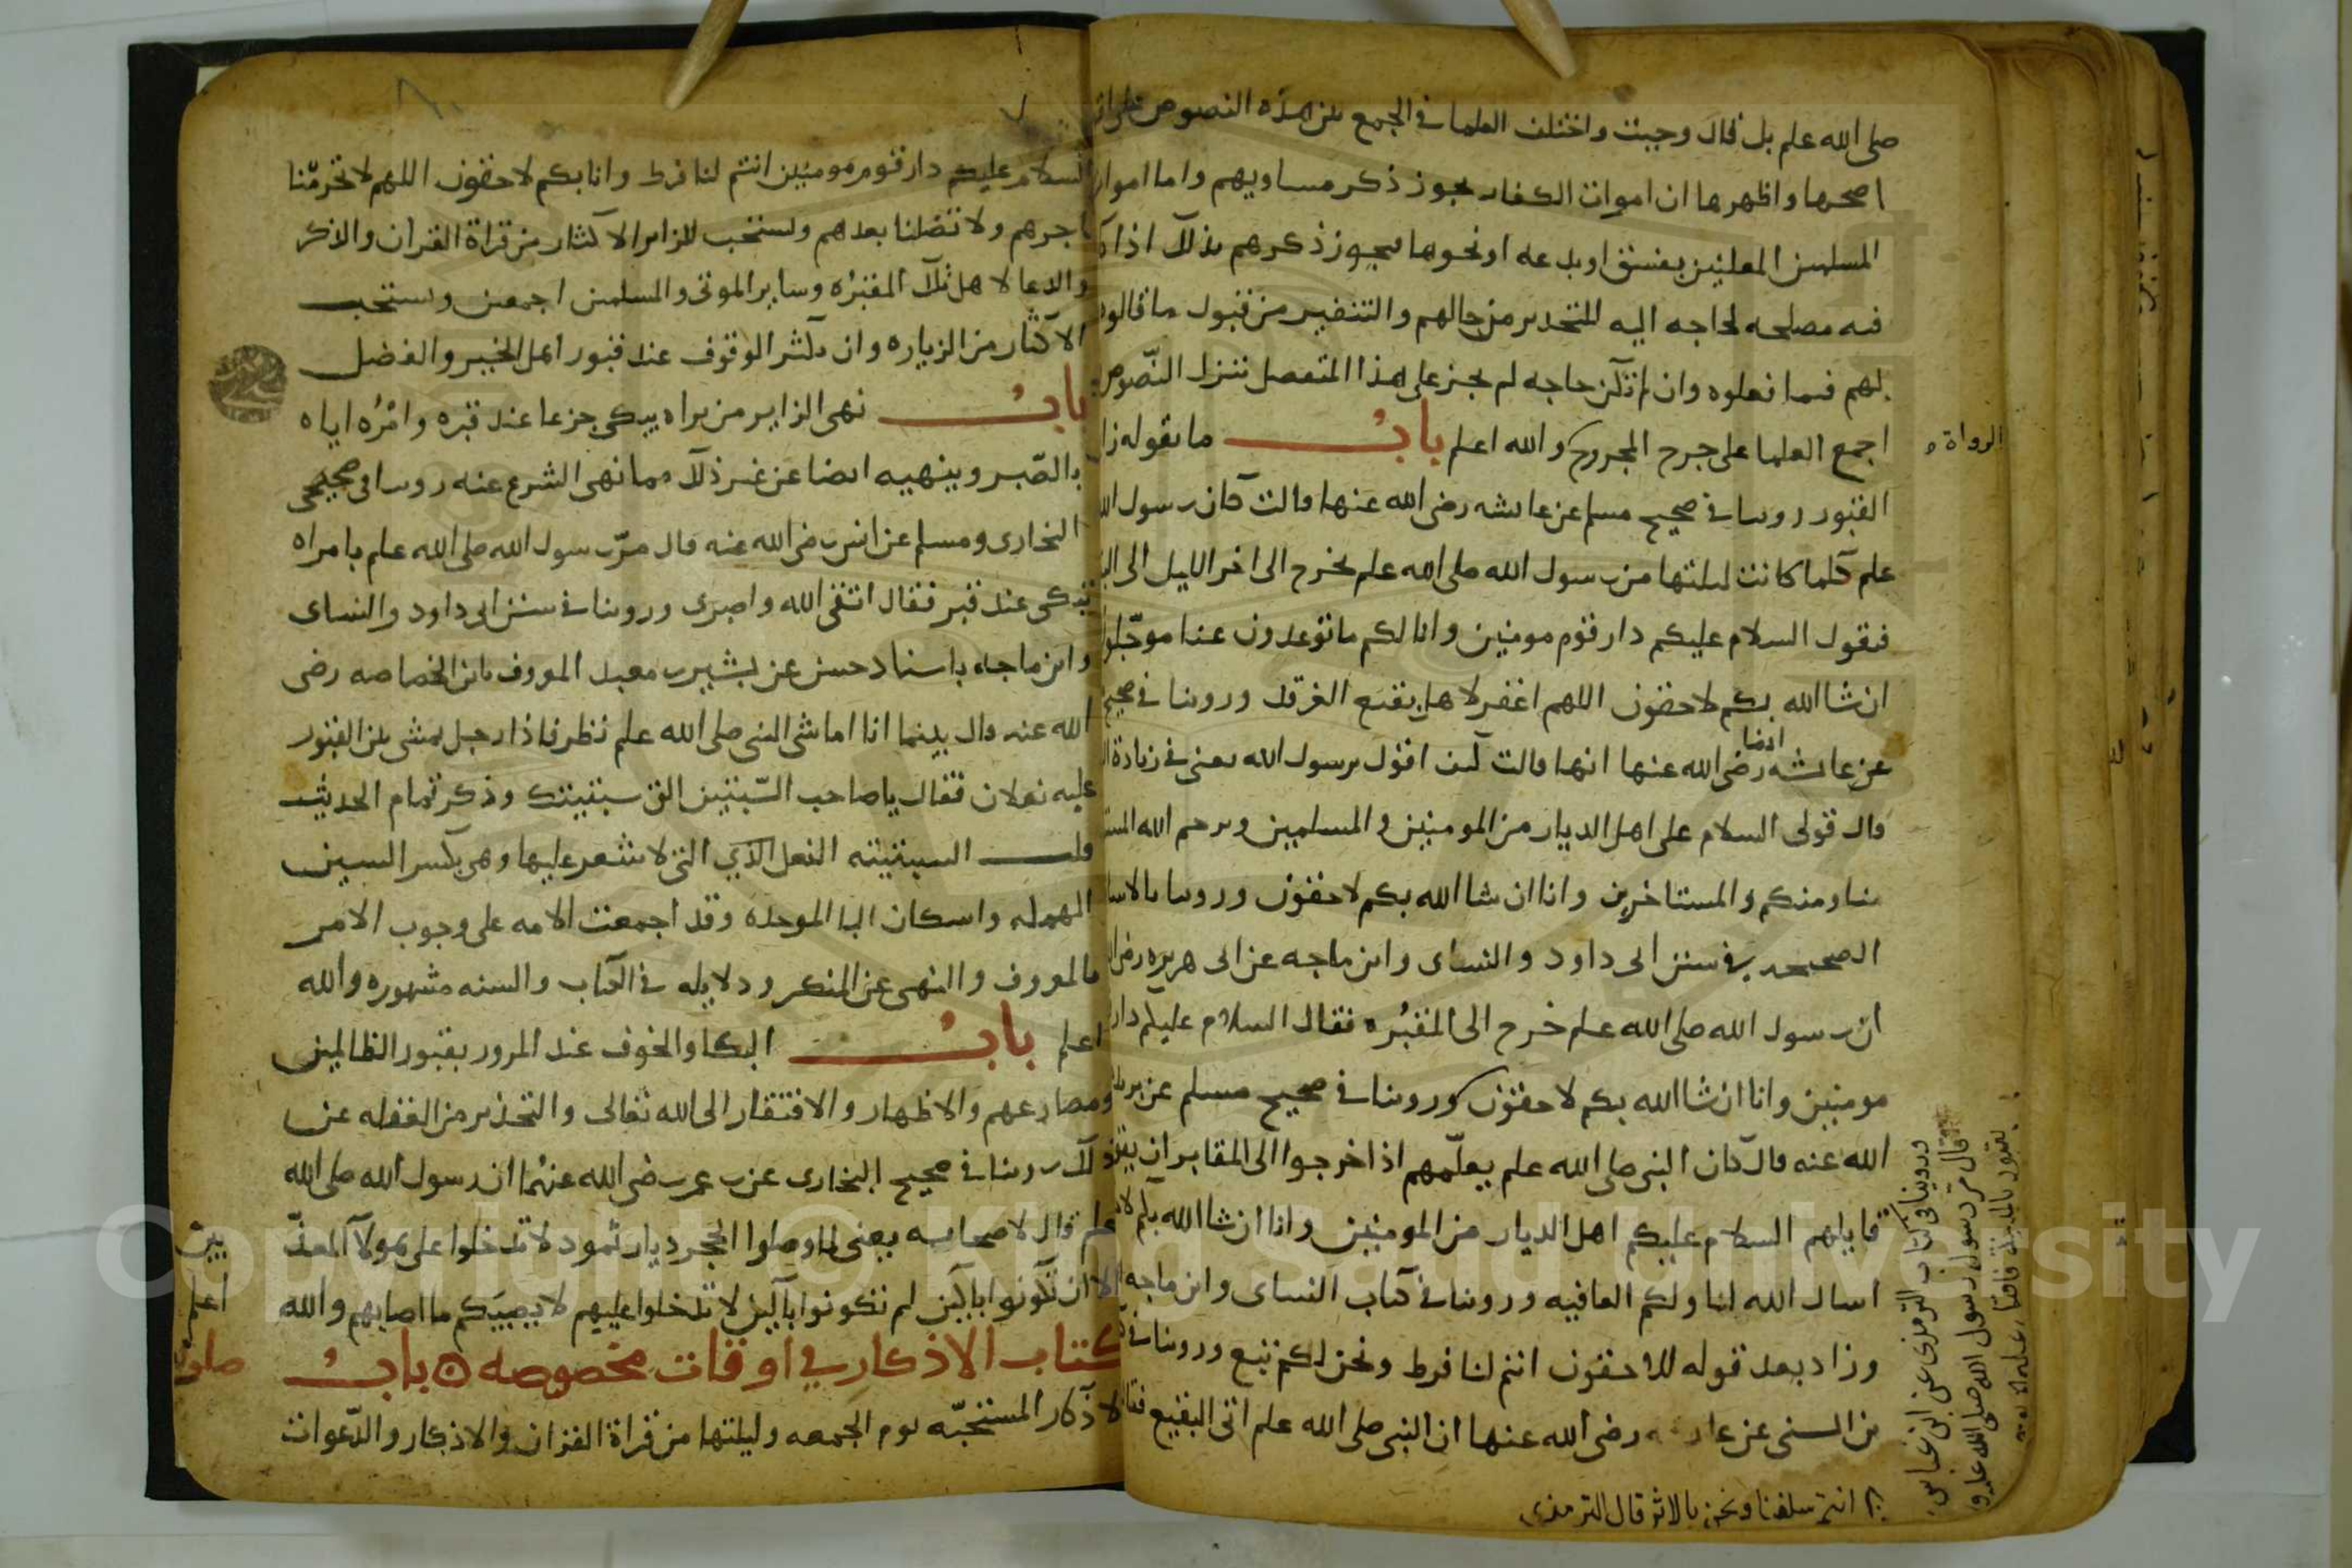 صلى الله علم بل قال وجبت واختلف العلما في الجمع بين هذه النصوص على اقوال
اصحها واظهرها ان اموات الكفار يجوز ذكر مساويهم واما اموات
المسلمين المعلنين بفسق او بدعه او نحوها فيجوز ذكرهم بذلك اذا كان
فيه مصلحه لحاجه اليه للتحذير من حالهم والتنفير من قبول ما قالوه
لهم فيما فعلوه وان لم تكن حاجه لم يجز على هذا التفصيل تنزل النّصوص
اجمع العلما على جرح المجروح والله اعلم بابُ ما يقوله زا
الرواة
القبور روينا في صحيح مسلم عن عايشه رضى الله عنها قالت كان رسول الله
علم كلما كانت ليلتها من رسول الله صلى الله علم يخرج الى اخر الليل الى
فيقول السلام عليكم دار قوم مومنين واتاكم ما توعدون غدا موجّلون
ان شا الله بكم لاحقون اللهم اغفر لاهل بقيع الغرقد وروينا في صحيح
عن عايشه ايضا رضى الله عنها انها قالت كيف اقول يرسول الله يعنى في زيادة
قال قولى السلام على اهل الديار من المومنين والمسلمين ويرحم الله المست
منا ومنكم والمستاخرين وانا ان شا الله بكم لاحقون وروينا بالاسا
الصحيحه في سنن ابى داود والنساى وابن ماجه عن ابى هريره رضى
ان رسول الله صلى الله علم خرج الى المقبُره فقال السلام عليكم دار
مومنين وانا ان شا الله بكم لاحقون وروينا في صحيح مسلم عن بريد
الله عنه قال كان النبى صلى الله علم يعلّمهم اذا خرجوا الى المقابر ان يقو
قايلهم السلام عليكم اهل الديار من المومنين وانا ان شا الله بكم لا
اسال الله لنا ولكم العافيه وروينا في كتاب النساى وابن ماجه
وزاد بعد قوله للاحقون انتم لنا فرط ونحن لكم تبع وروينا في
بن السنى عن عايشه رضى الله عنها ان النبى صلى الله علم اتى البقيع فقا
وروينا في كتاب الترمذى عن ابن عباس
قال مرّ رسول الله صلى الله علم
بقبور بالمدينة فاقبل عليهم
انتم سلفنا ونحن بالاثر قال الترمذى
السلام عليكم دار قوم مومنين انتم لنا فرط وانا بكم لاحقون اللهم لا تحرمّنا
اجرهم ولا تضلنا بعدهم ويستحب للزاير الاكثار من قراة القران والذكر
والدعا لاهل تلك المقبرُه وساير الموتى والمسلمين اجمعين ويستحب
الاكثار من الزياره وان يكثر الوقوف عند قبور اهل الخير والفضل
بابُ نهى الزاير من يراه يبكى جزعا عند قبره وامْرُه اياه
بالصّبر وينهيه ايضا عن غير ذلك مما نهى الشرع عنه روينا في صحيحى
البخارى ومسلم عن انس رضى الله عنه قال مرّ رسول الله صلى الله علم بامراه
تبكى عند قبر فقال اتقى الله واصبرى وروينا في سنن ابى داود والنساى
وابن ماجه باسناد حسن عن بشير بن معبد المعروف بابن الخصاصه رضى
الله عنه قال بينما انا اماشى النبى صلى الله علم نظر فاذا رجل يمشى بين القبور
عليه نعلان فقال يا صاحب السّبتيتين الق سبتيتك وذكر تمام الحديث
قلت السبتيته النعل الذي التى لا شعر عليها وهى بكسر السين
المهمله واسكان البا الموحده وقد اجمعت الامه على وجوب الامر
بالمعروف والنهى عن المنكر ودلايله في الكتاب والسنه مشهوره والله
اعلم بابُ البكا والخوف عند المرور بقبور الظالمين
ومصارعهم والاظهار والافتقار الى الله تعالى والتحذير من الغفله عن
ذلك روينا في صحيح البخارى عن بن عمر رضى الله عنهُما ان رسول الله صلى الله
علم قال لاصحابه يعنى لما وصلوا الحجر ديار ثمود لا تدخلوا على هولاء المعذّبين
الا ان تكونوا باكين لم تكونوا باكين لا تدخلوا عليهم لا يصيبَكم ما اصابهم والله اعلم
كتاب الاذكار في اوقات مخصوصه ۞ بابُ
الاذكار المستحبّه يوم الجمعه وليلتها من قراة القران والاذكار والدّعوات
Copyright © King Saud University